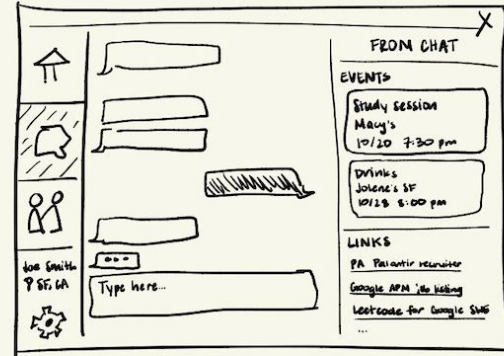 FROM CHAT
EVENTS
Study session
Macy's
10/20 7:30 pm
Drinks
Jolene's SF
10/28 8:00 pm
LINKS
PA Palantir recruiter
Google APM job listing
Leetcode for Google SWE
...
Joe Smith
SF, CA
Type here...